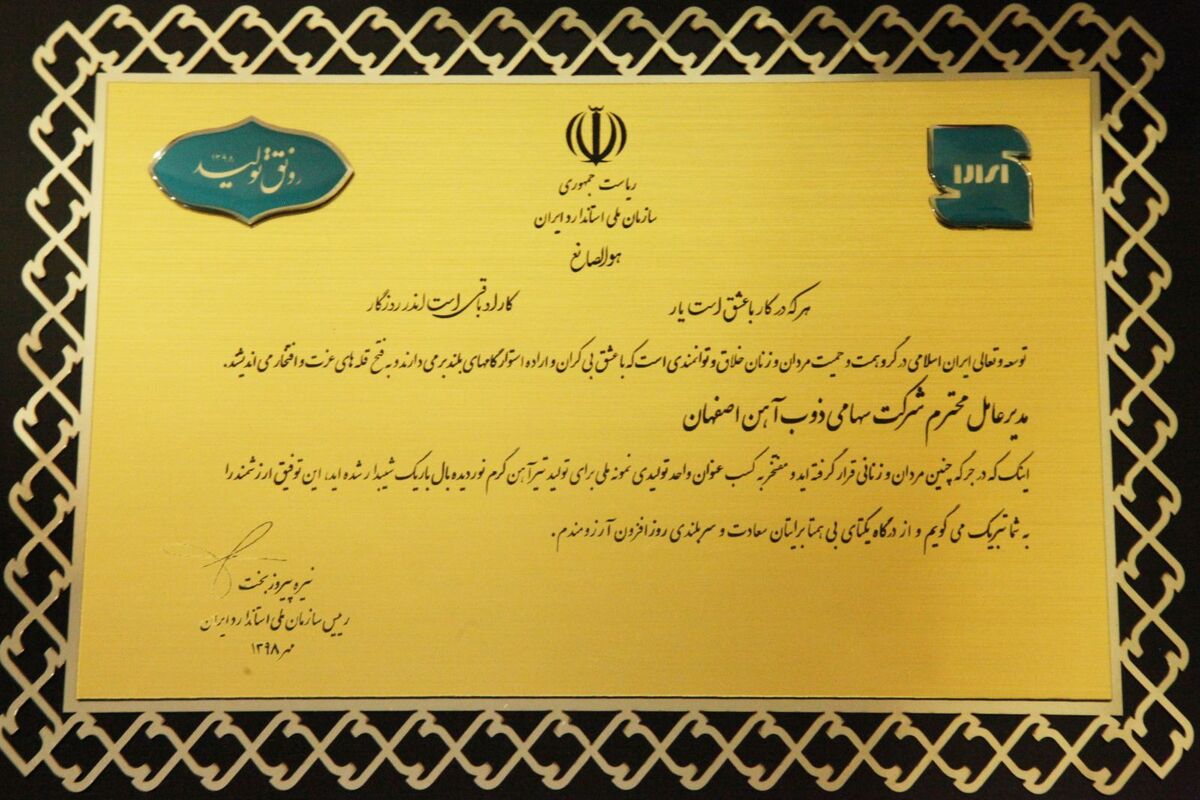 رونق تولید
۱۳۹۸
ریاست جمهوری
سازمان ملی استاندارد ایران
هوالصانع
هر که در کار با عشق است یار کار او باقی است اندر روزگار
توسعه و تعالی ایران اسلامی در گرو همت و حمیت مردان و زنان خلاق و توانمندی است که با عشق بی کران و اراده استوار گامهای بلند برمی دارند و به فتح قله های عزت و افتخار می اندیشند.
مدیرعامل محترم شرکت سهامی ذوب آهن اصفهان
اینک که در جرگه چنین مردان و زنانی قرار گرفته اید و مفتخر به کسب عنوان واحد تولیدی نمونه ملی برای تولید تیرآهن گرم نوردیده بال باریک شیبدار شده اید، این توفیق ارزشمند را
به شما تبریک می گویم و از درگاه یکتای بی همتا برایتان سعادت و سربلندی روزافزون آرزومندم.
نیره پیروزبخت
رییس سازمان ملی استاندارد ایران
مهر ۱۳۹۸